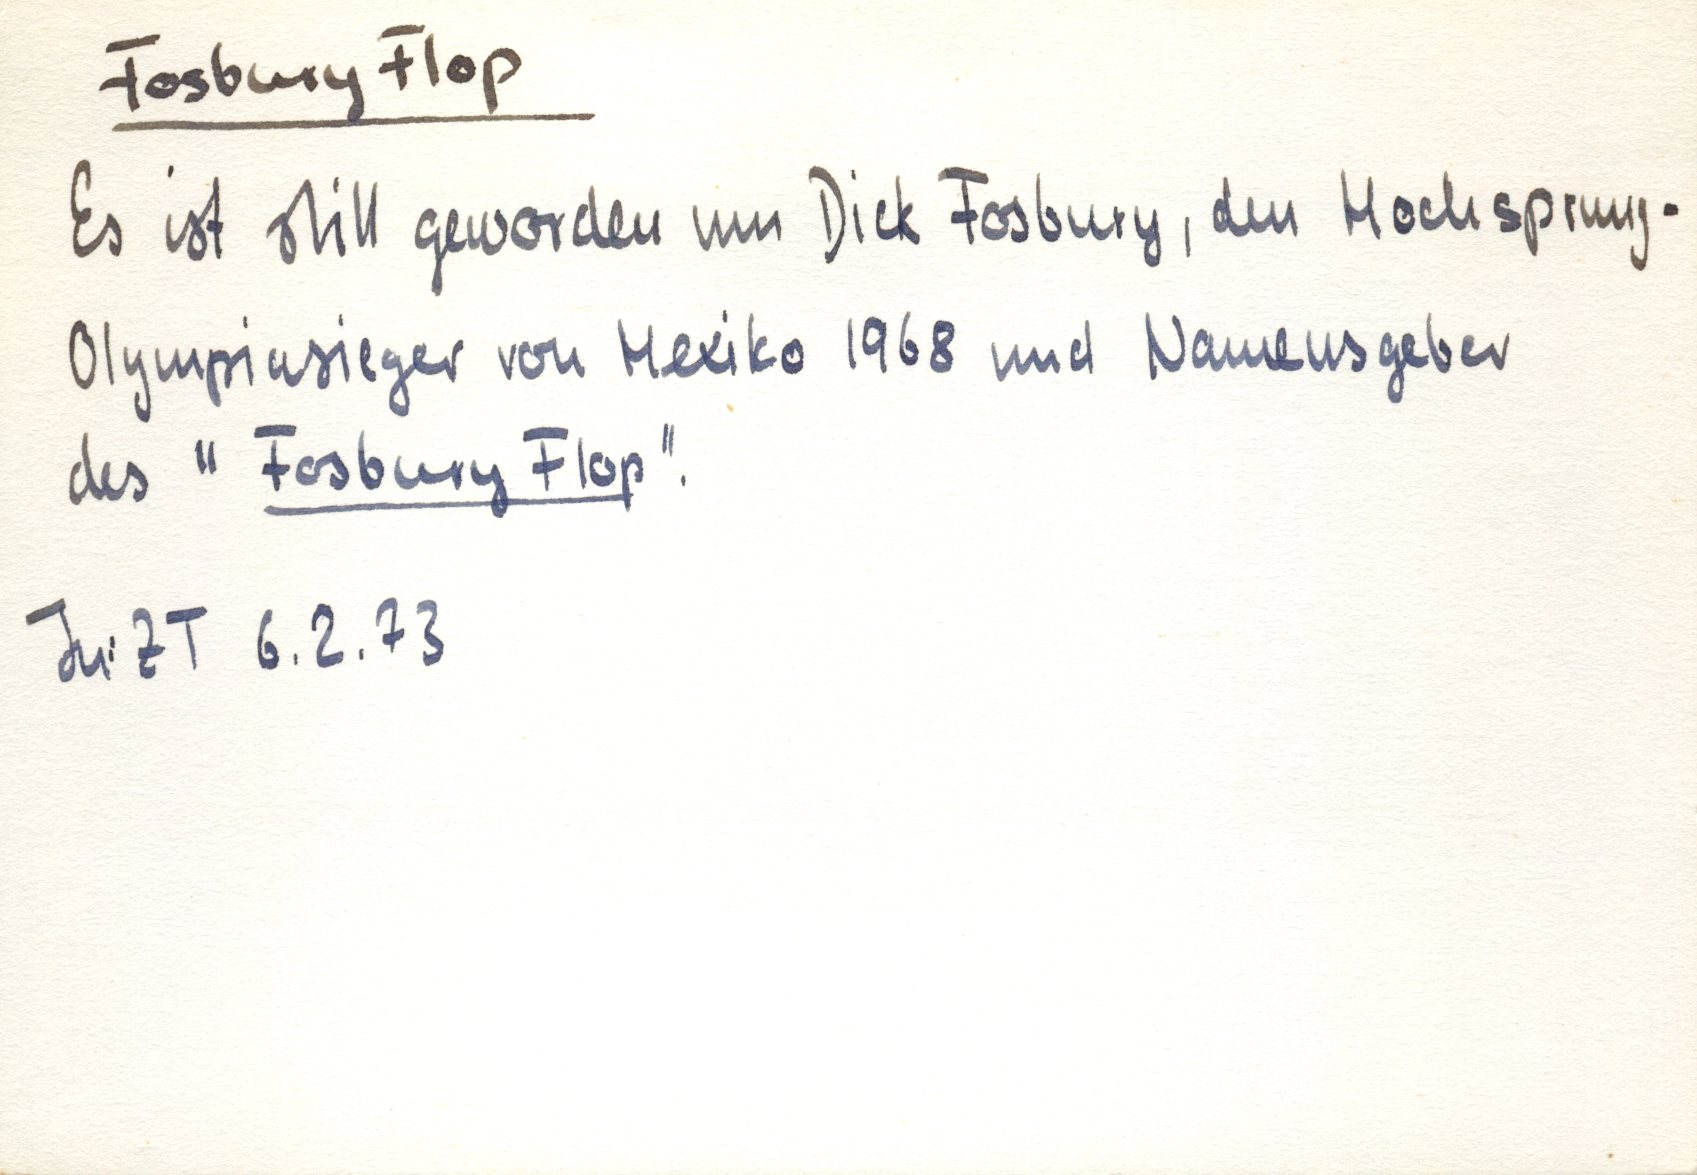 Fosbury Flop
Es ist still geworden um Dick Fosbury, den Hochsprung-
Olympiasieger von Mexiko 1968 und Namensgeber
des "Fosbury Flop".
6.2.73